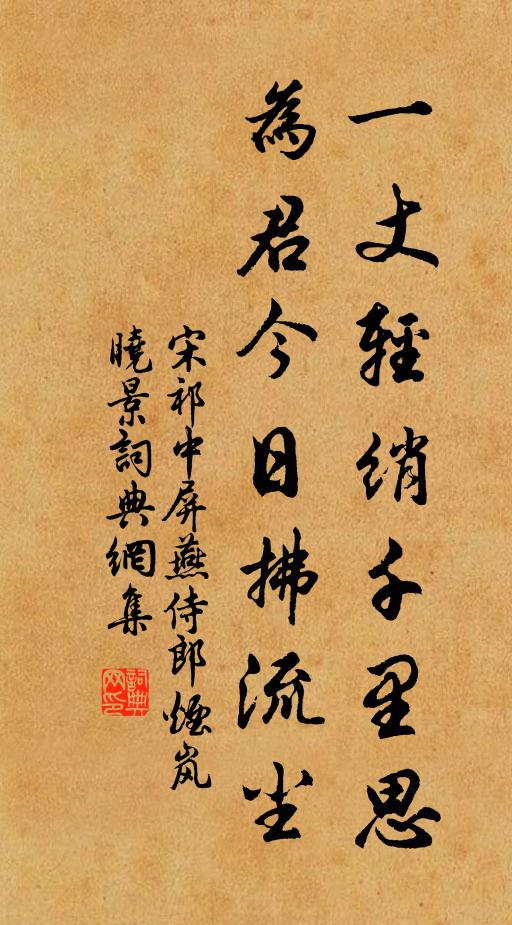 一丈輕綃千里思
為君今日拂流尘
宋祁中屏燕侍郎煙岚
曉景詞典網集
詞典网印